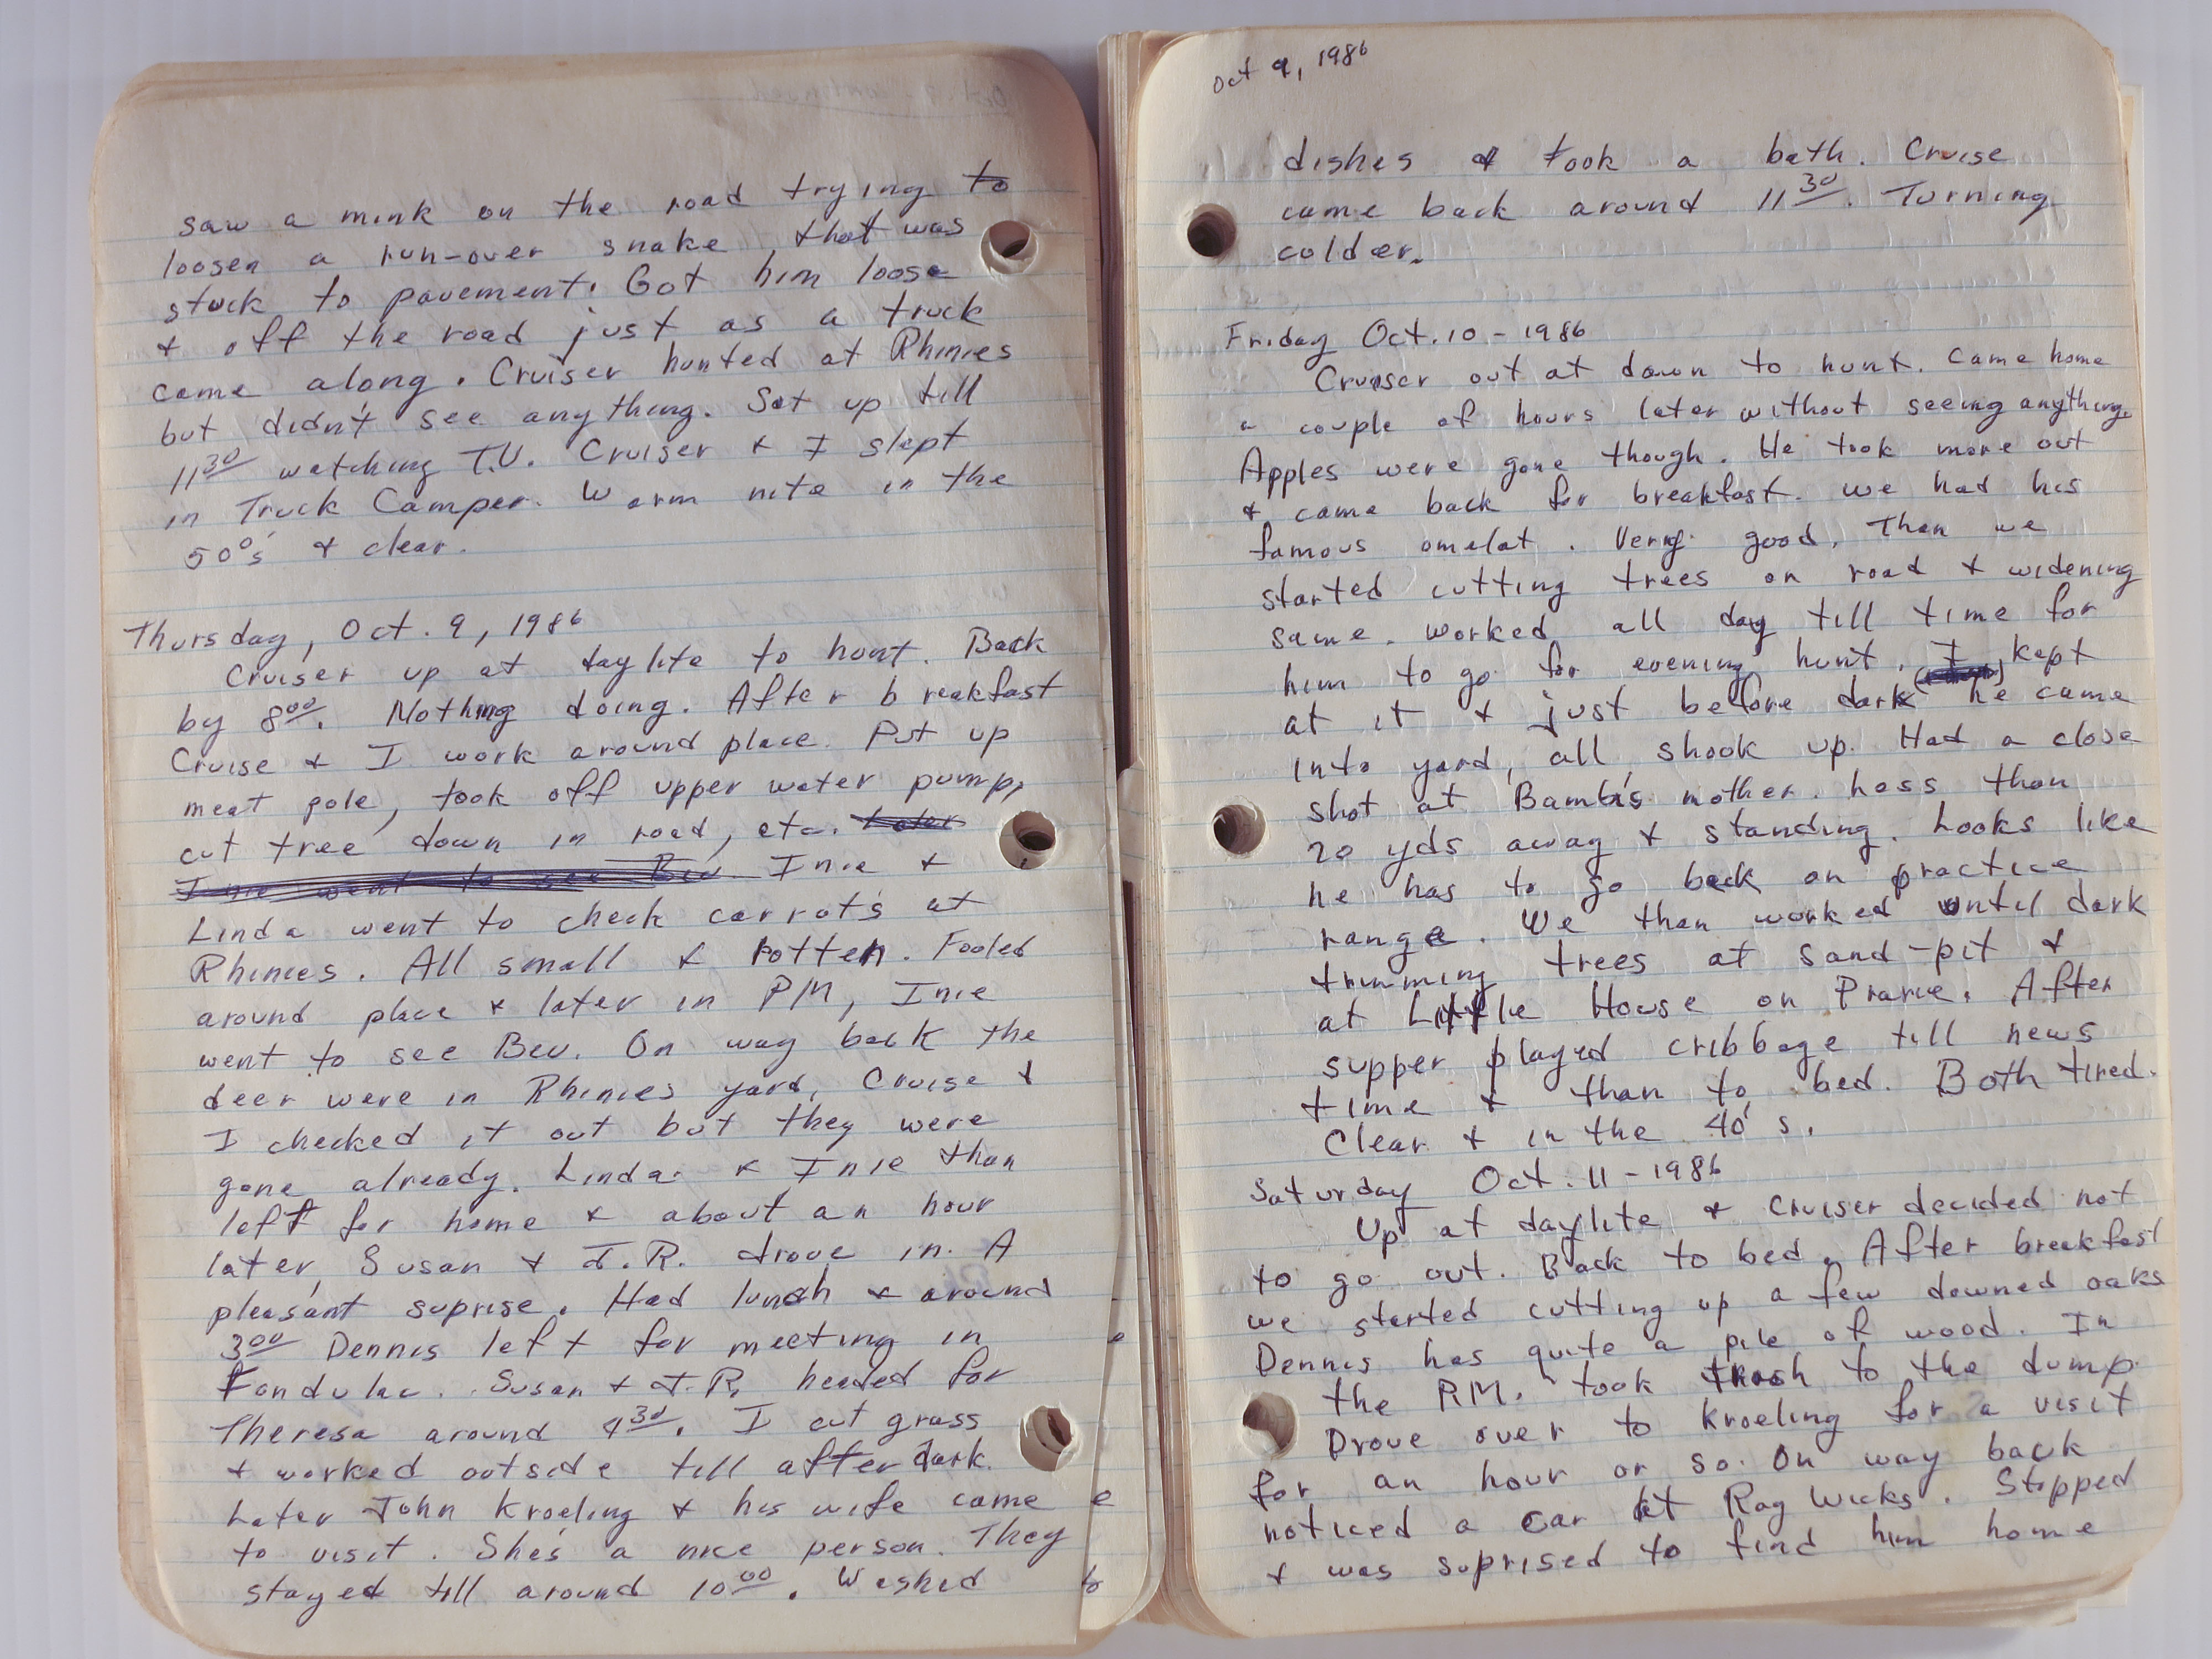 saw a mink on the road trying to
loosen a run-over snake, that was
stuck to pavement. Got him loose
& off the road just as a truck
came along. Cruiser hunted at Rhinies
but didn't see anything. Sat up till
11³⁰ watching T.V. Cruiser & I slept
in Truck Camper. Warm nite in the
50°s & clear.
Thursday, Oct. 9, 1986
Cruiser up at daylite to hunt. Back
by 8⁰⁰. Nothing doing. After breakfast
Cruise & I work around place. Put up
meat pole, took off upper water pump,
cut tree down in road, etc. Later
Inie went to see Bev. Inie &
Linda went to check carrots at
Rhinies. All small & rotten. Fooled
around place & later in PM, Inie
went to see Bev. On way back the
deer were in Rhinies yard, Cruise &
I checked it out but they were
gone already. Linda & Inie than
left for home & about an hour
later, Susan & J.R. drove in. A
pleasant suprise. Had lunch & around
3⁰⁰ Dennis left for meeting in
Fondulac. Susan & J.R. headed for
Theresa around 4³⁰. I cut grass
& worked outside till after dark.
Later John Kroeling & his wife came
to visit. She's a nice person. They
stayed till around 10⁰⁰. Washed
Oct 9, 1986
dishes & took a bath. Cruise
came back around 11³⁰. Turning
colder.
Friday Oct. 10 - 1986
Cruiser out at dawn to hunt. Came home
a couple of hours later without seeing anything.
Apples were gone though. He took more out
& came back for breakfast. We had his
famous omelat. Very good. Than we
started cutting trees on road & widening
same. Worked all day till time for
him to go for evening hunt. I kept
at it & just before dark he came
into yard, all shook up. Had a close
shot at Bambi's mother. Less than
20 yds away & standing. Looks like
he has to go back on practice
range. We than worked until dark
trimming trees at sand-pit &
at Little House on Prarie. After
supper played cribbage till news
time & than to bed. Both tired.
Clear & in the 40's.
Saturday Oct. 11 - 1986
Up at daylite & Cruiser decided not
to go out. Back to bed. After breakfast
we started cutting up a few downed oaks
Dennis has quite a pile of wood. In
the P.M. took trash to the dump.
Drove over to Kroeling for a visit
for an hour or so. On way back
noticed a car at Ray Wicks. Stopped
& was suprised to find him home